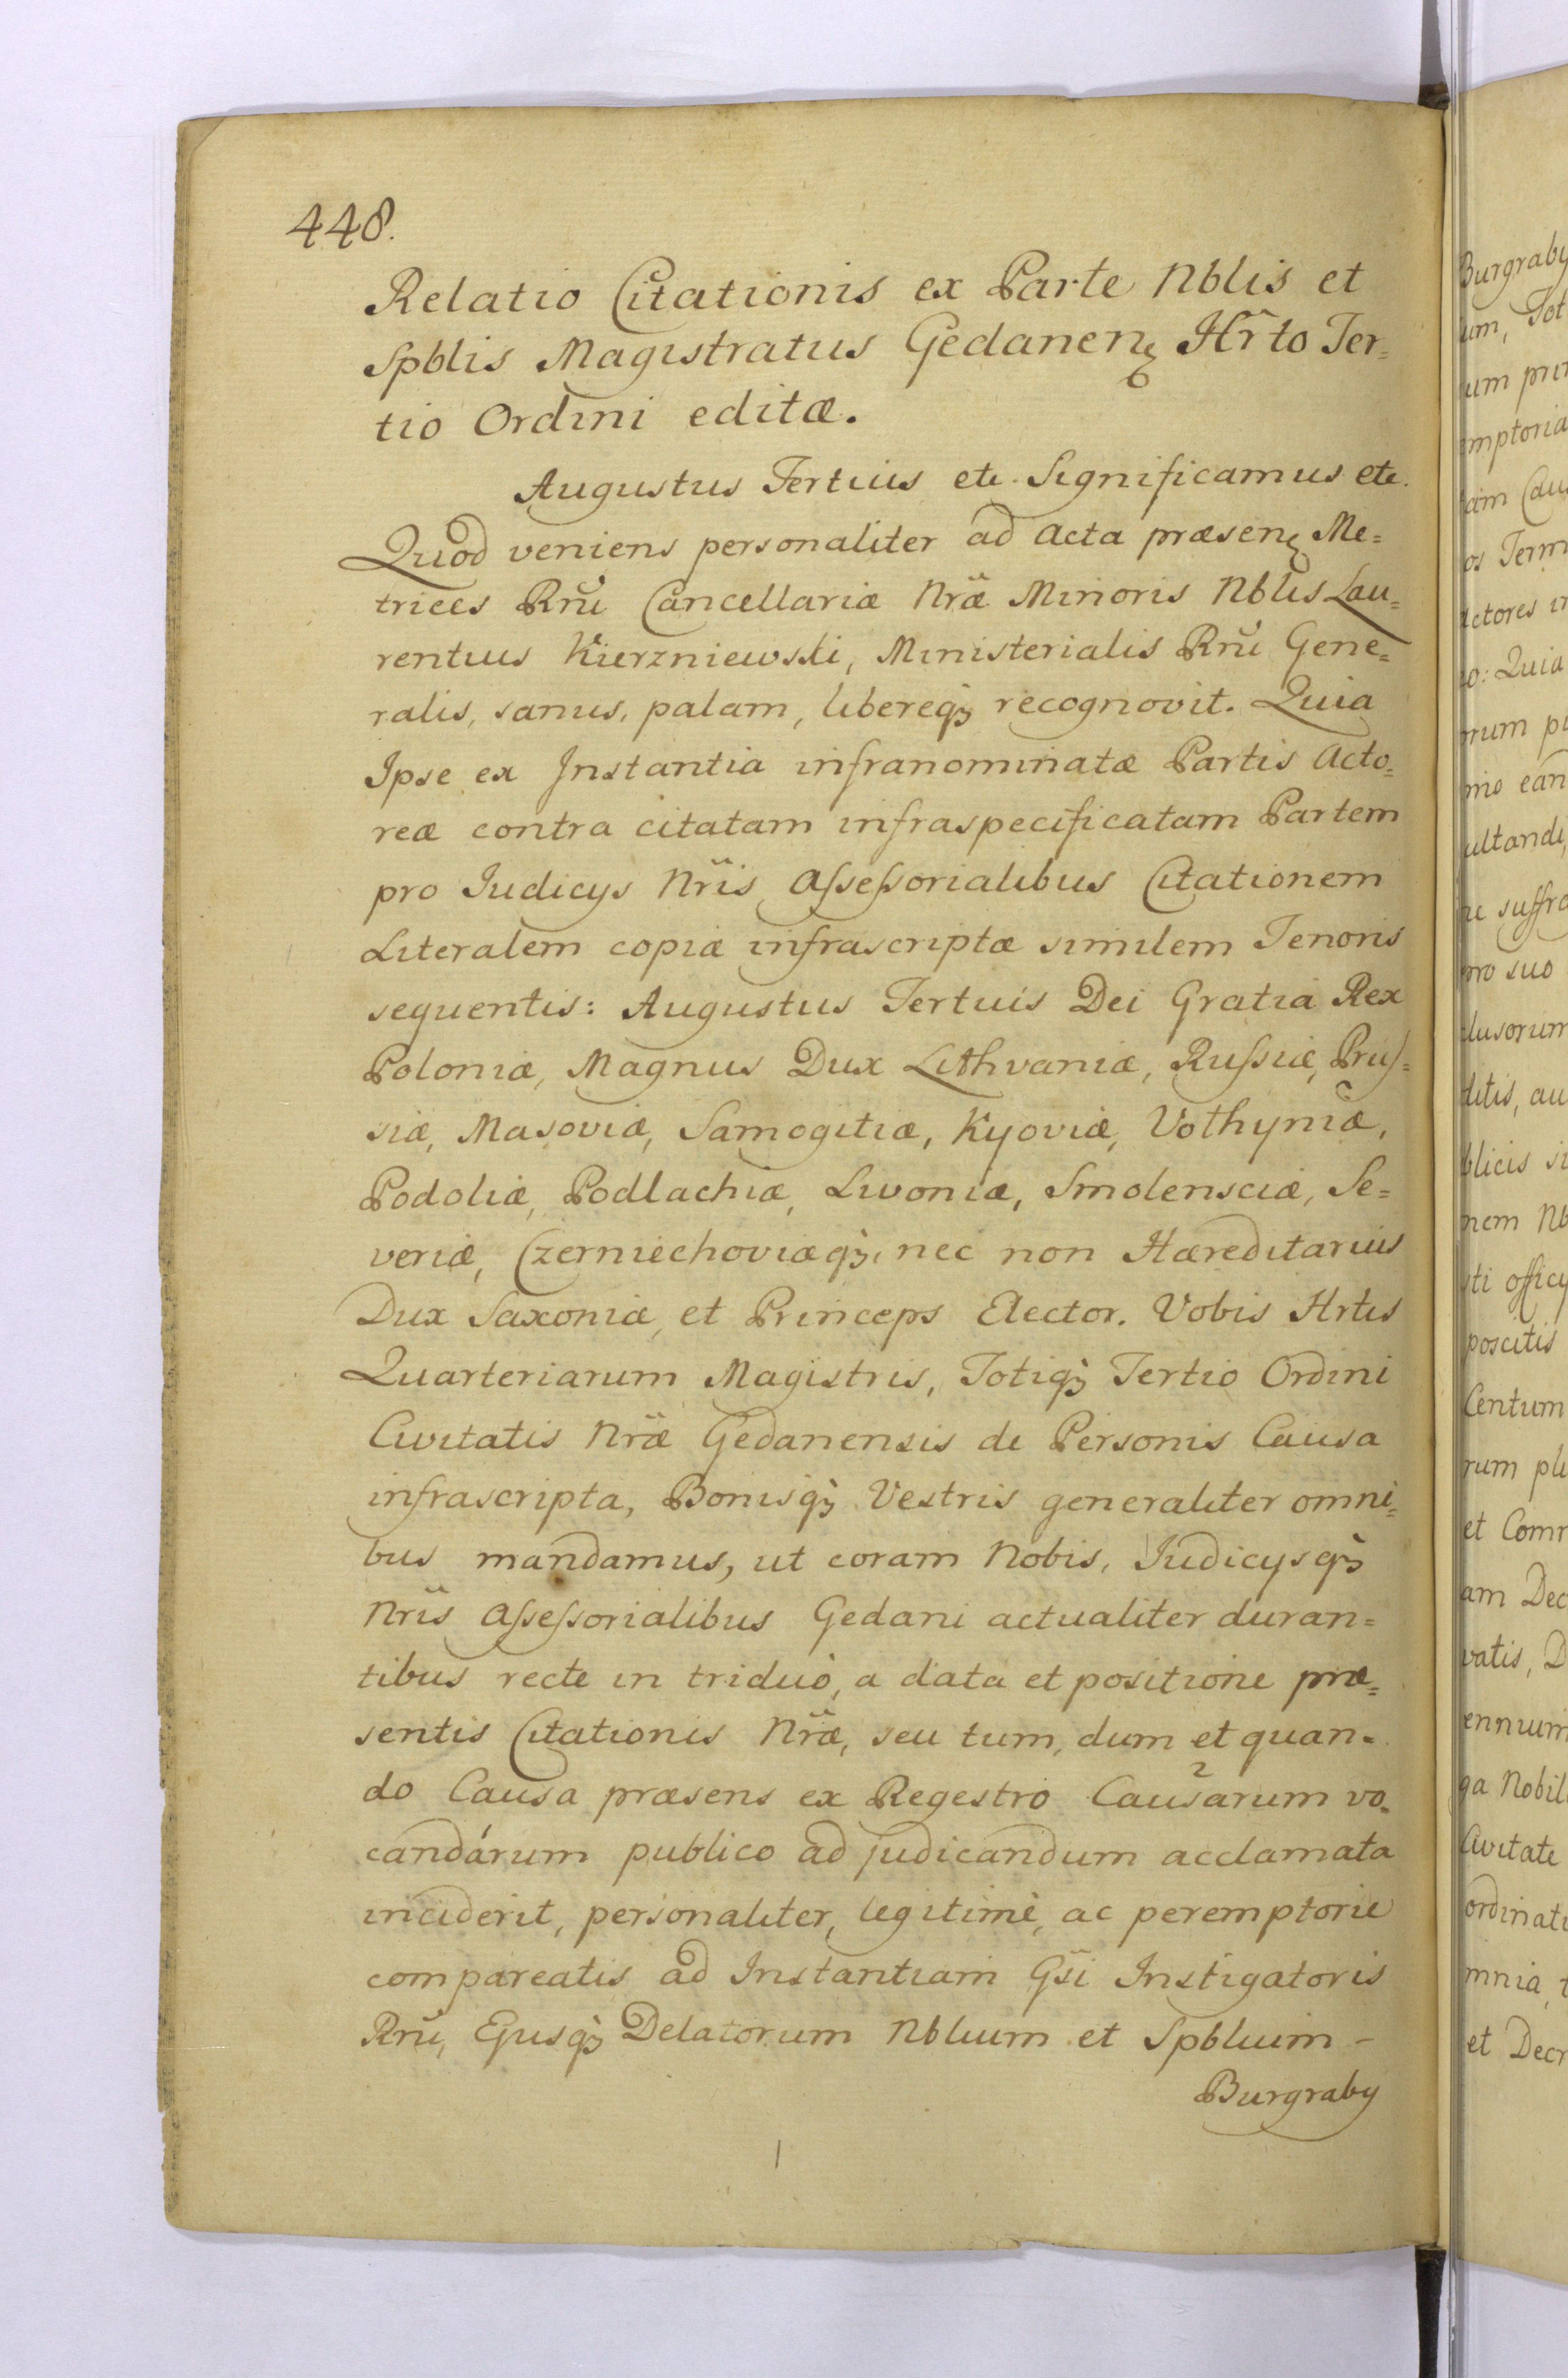 448.
Relatio Citationis ex Parte Nblis et
Spblis Magistratus Gedanenę Hrto Ter=
tio Ordini editæ.
Augustus Tertius etc. Significamus etc.
Quod veniens personaliter ad Acta præsenę Me=
trices Rnŭ Cancellariæ Nræ Minoris Nblis Lau=
rentius Kierzniewski, Ministerialis Rnŭ Gene=
ralis, sanus, palam, libereqꝫ recognovit. Quia
Ipse ex Instantia infranominatæ Partis Acto=
reæ contra citatam infraspecificatam Partem
pro Iudicys Nris Aſseſsorialibus Citationem
Literalem copiæ infrascriptæ similem Tenoris
sequentis: Augustus Tertuis Dei Gratia Rex
Poloniæ, Magnus Dux Lithvaniæ, Ruſsiæ, Pruſ=
siæ, Masoviæ, Samogitiæ, Kyoviæ, Volhyniæ,
Podoliæ, Podlachiæ, Livoniæ, Smolensciæ, Se=
veriæ, Czerniechoviæqꝫ, nec non Hæreditarius
Dux Saxoniæ, et Princeps Elector. Vobis Hrtis
Quarteriarum Magistris, Totiqꝫ Tertio Ordini
Civitatis Nræ Gedanensis de Personis Causa
infrascripta, Bonisqꝫ Vestris generaliter omni=
bus mandamus, ut coram Nobis, Iudicysqꝫ
Nris Aſseſsorialibus Gedani actualiter duran=
tibus recte in triduo, a data et positione præ=
sentis Citationis Nræ, seu tum, dum et quan=
do Causa præsens ex Regestro Causarum vo=
candárum publico ad judicandum acclamata
inciderit, personaliter, legitimè, ac peremptorie
compareatis ad Instantiam Gsi Instigatoris
Rnŭ, Ejusqꝫ Delatorum Nblium et Spblium –
Burgraby
Burgraby
um, Tot
um pri
mptoria
am Cau
os Term
ctores in
o: Quia
rum pu
mo ean
ultandi,
ne suffra
pro suo
lusorum
ditis, au
blicis si
nem Nb
sti officy
poscitis
Centum
rum pl
et Comm
am Dec
vatis, D
ennium
ga Nobil
Civitate
ordinati
mnia, t
et Decr